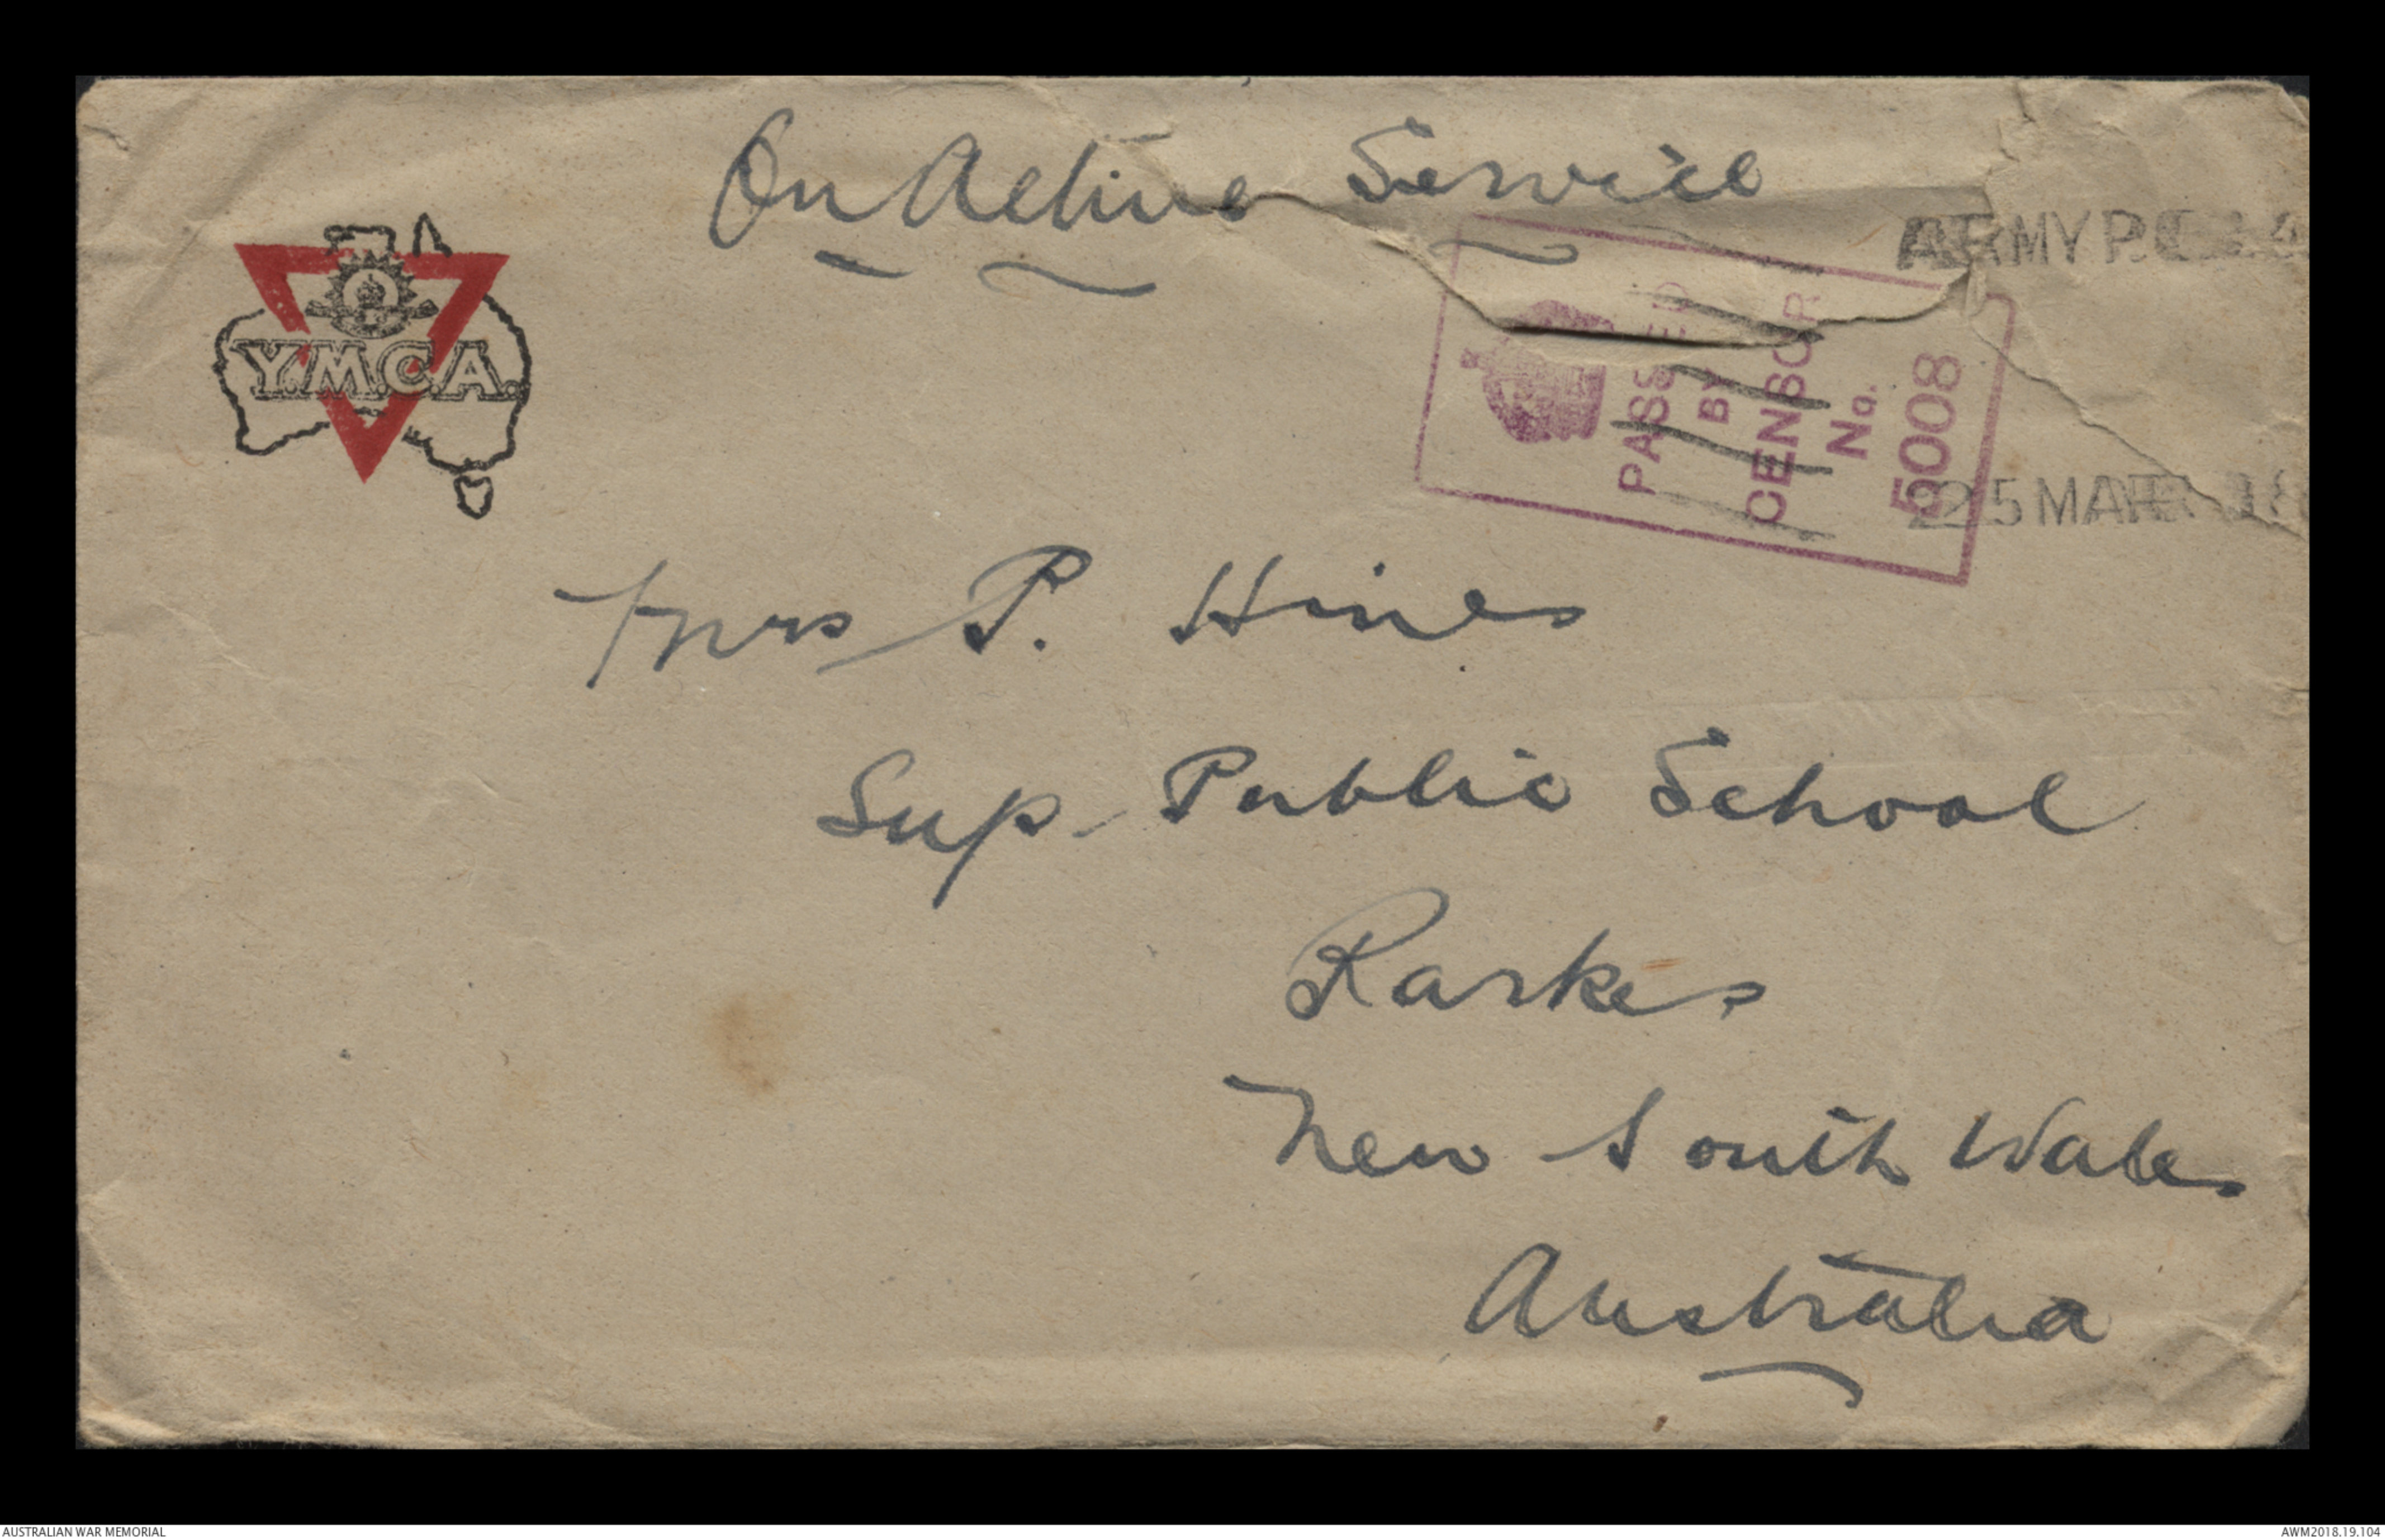 On Active Service
ARMY P.O.
Y.M.C.A.
PASSED
BY
CENSOR
No.
5008
25 MAR
Mrs P. Hines
Sup. Public School
Parkes
New South Wales
Australia
AUSTRALIAN WAR MEMORIAL
AWM2018.19.104